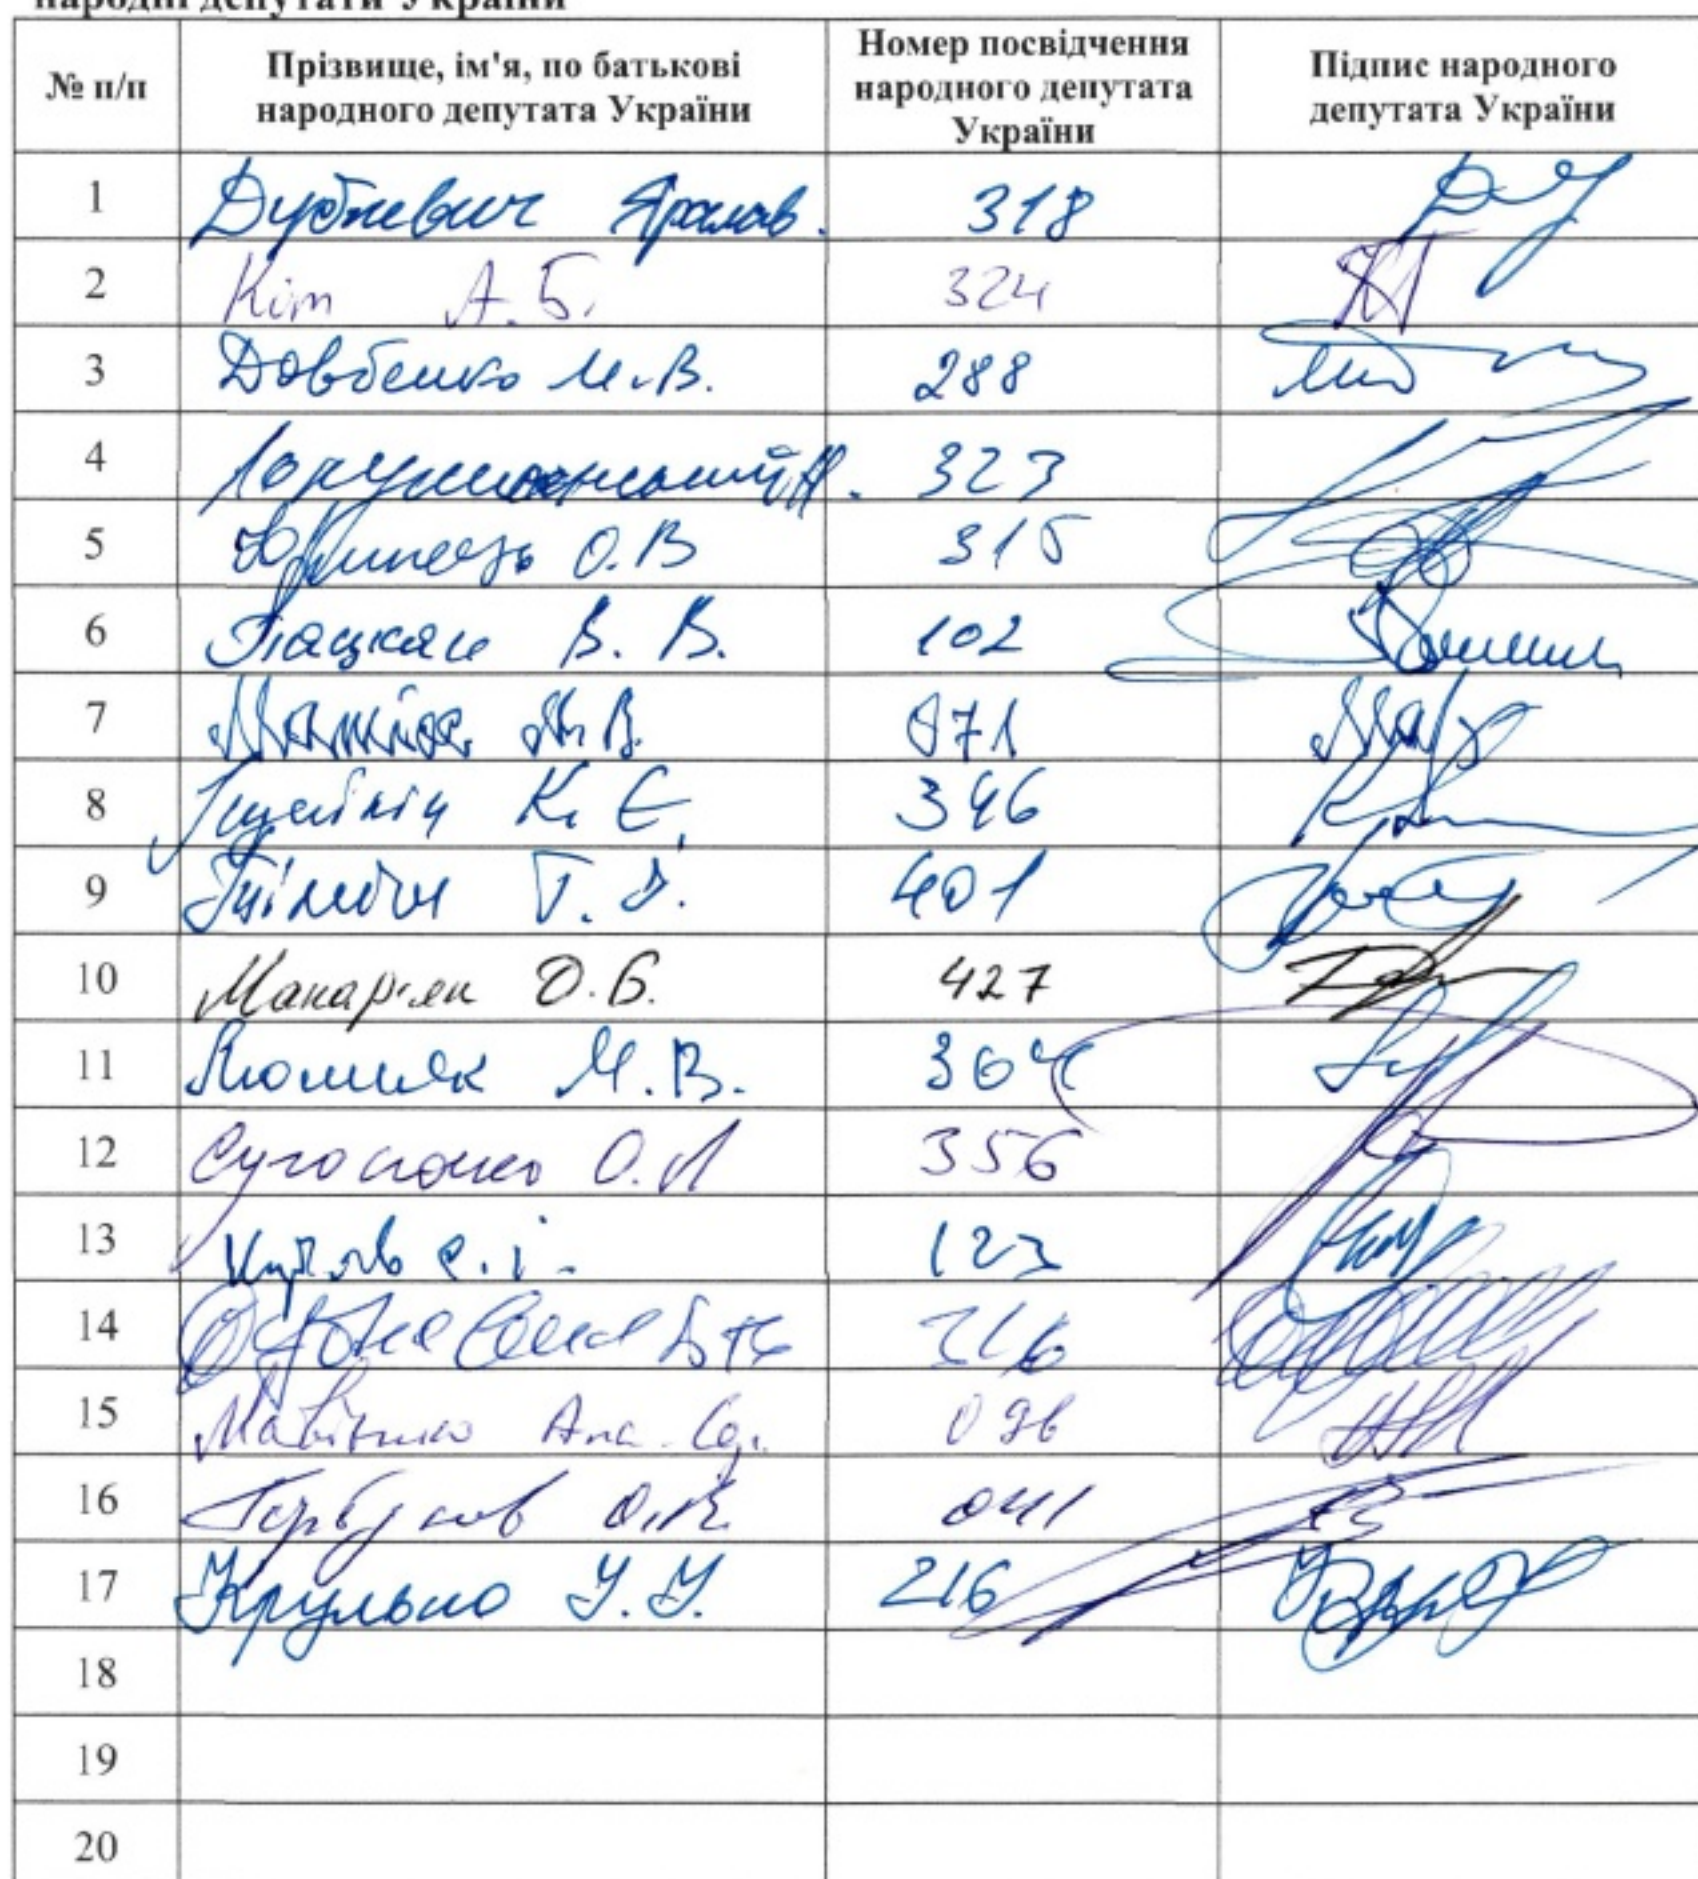 народні депутати України
№ п/п
Прізвище, ім'я, по батькові
народного депутата України
Номер посвідчення
народного депутата
України
Підпис народного
депутата України
1 Дубневич Ярослав. 318
2 Кіт А.Б. 324
3 Довбенко М.В. 288
4 Лопушанський А. 323
5 О.В 315
6 Пацкан В. В. 102
7 Матвієнко А.В. 071
8 Іщейкін К. Є. 346
9 401
10 Макар'ян Д.Б. 427
11 Люшняк М.В. 364
12 Сугоняко О.Л 356
13 С.І. 123
14
15 096
16 Горбунов О.В. 041
17 Крулько І.І. 216
18
19
20